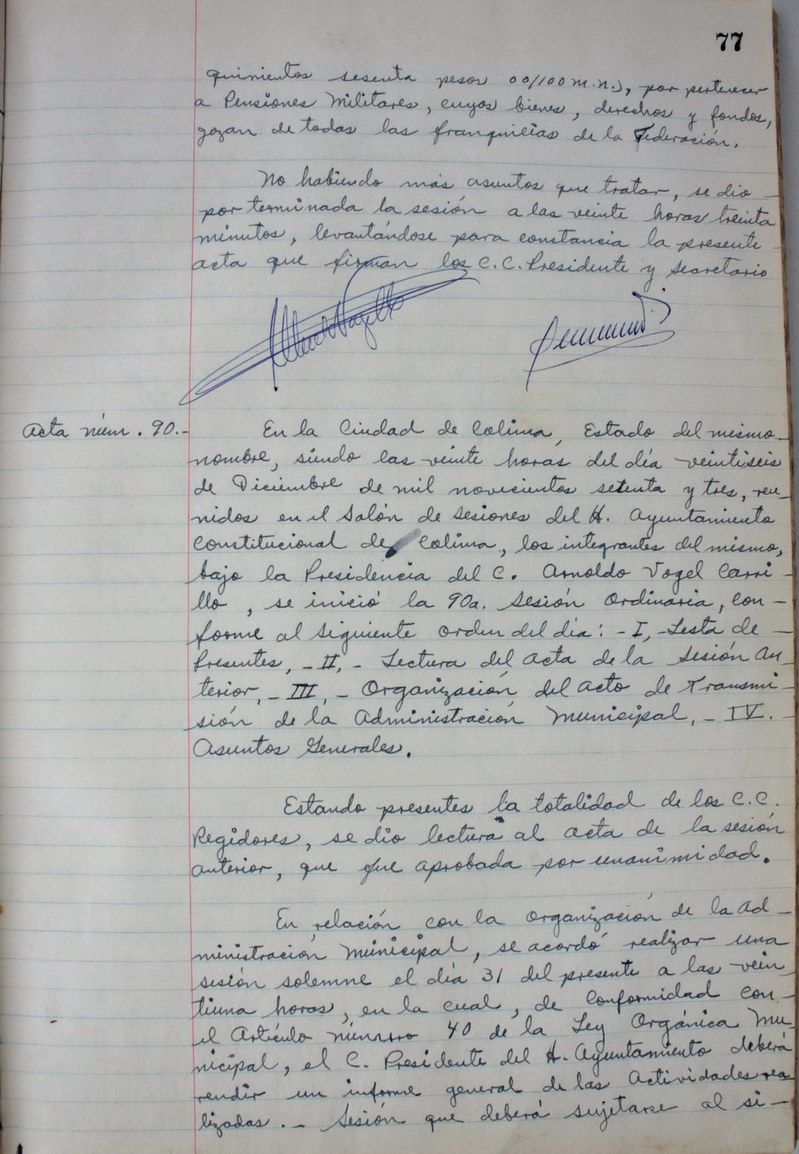 77
quinientos sesenta pesos 00/100 m.n.), por pertenecer
a Pensiones Militares, cuyos bienes, derechos y fondos,
gozan de todas las franquicias de la Federación.
No habiendo más asuntos que tratar, se dio
por terminada la sesión a las veinte horas treinta
minutos, levantándose para constancia la presente
acta que firman los C.C. Presidente y Secretario
Acta núm. 90.-
En la Ciudad de Colima, Estado del mismo
nombre, siendo las veinte horas del día veintiseis
de Diciembre de mil novecientos setenta y tres, reu-
nidos en el Salón de Sesiones del H. Ayuntamiento
Constitucional de Colima, los integrantes del mismo,
bajo la Presidencia del C. Arnoldo Vogel Carri-
llo, se inició la 90a. Sesión Ordinaria, con-
forme al siguiente orden del día: - I,- Lista de
Presentes, - II, - Lectura del Acta de la Sesión An-
terior, - III, - Organización del Acto de Transmi-
sión de la Administración Municipal, - IV. -
Asuntos Generales.
Estando presentes la totalidad de los C.C.
Regidores, se dio lectura al acta de la sesión
anterior, que fue aprobada por unanimidad.
En relación con la organización de la Ad-
ministración Municipal, se acordó realizar una
sesión solemne el día 31 del presente a las vein
tiuna horas, en la cual, de conformidad con
el Artículo número 40 de la Ley Orgánica Mu-
nicipal, el C. Presidente del H. Ayuntamiento deberá
rendir un informe general de las Actividades rea
lizadas. - Sesión que deberá sujetarse al si-